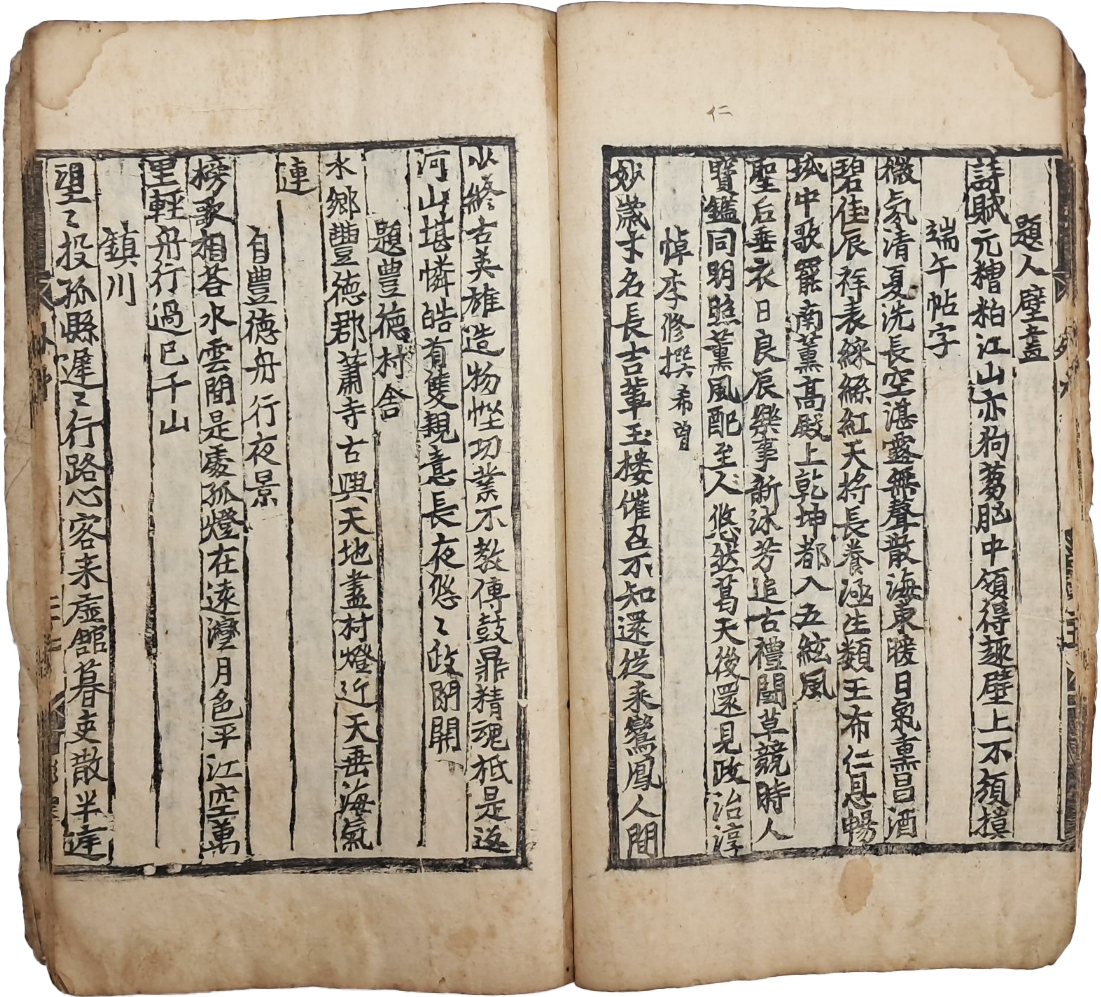 仁
題人壁畫
詩賦元糟粕江山亦狗芻肥中領得趣壁上不須摸
端午帖字
微氛清夏洗長空湛露無聲散海東暖日氣薰昌酒
碧佳辰祥表綵絲紅天將長養涵生類王布仁恩暢
域中歌罷南薰高殿上乾坤都入五絃風
聖后垂衣日良辰樂事新沐芳追古禮鬪草競時人
寶鑑同明照薰風配至人悠然篤天後還見政治淳
悼李修撰希曾
妙歲才名長吉輩玉樓催召不知還從來鸞鳳人間
少終古英雄造物慳功業不教傳鼓鼎精魂祗是返
河山堪憐皓首雙親意長夜悠〻政閉關
題豐德村舍
水鄉豐德郡蕭寺古興天地盡村燈近天垂海氣
連
自豐德舟行夜景
榜歌相答水雲間是處孤燈在遠灣月色平江空萬
里輕舟行過已千山
鎮川
望〻投孤縣遲〻行路心客來虛館暮吏散半庭